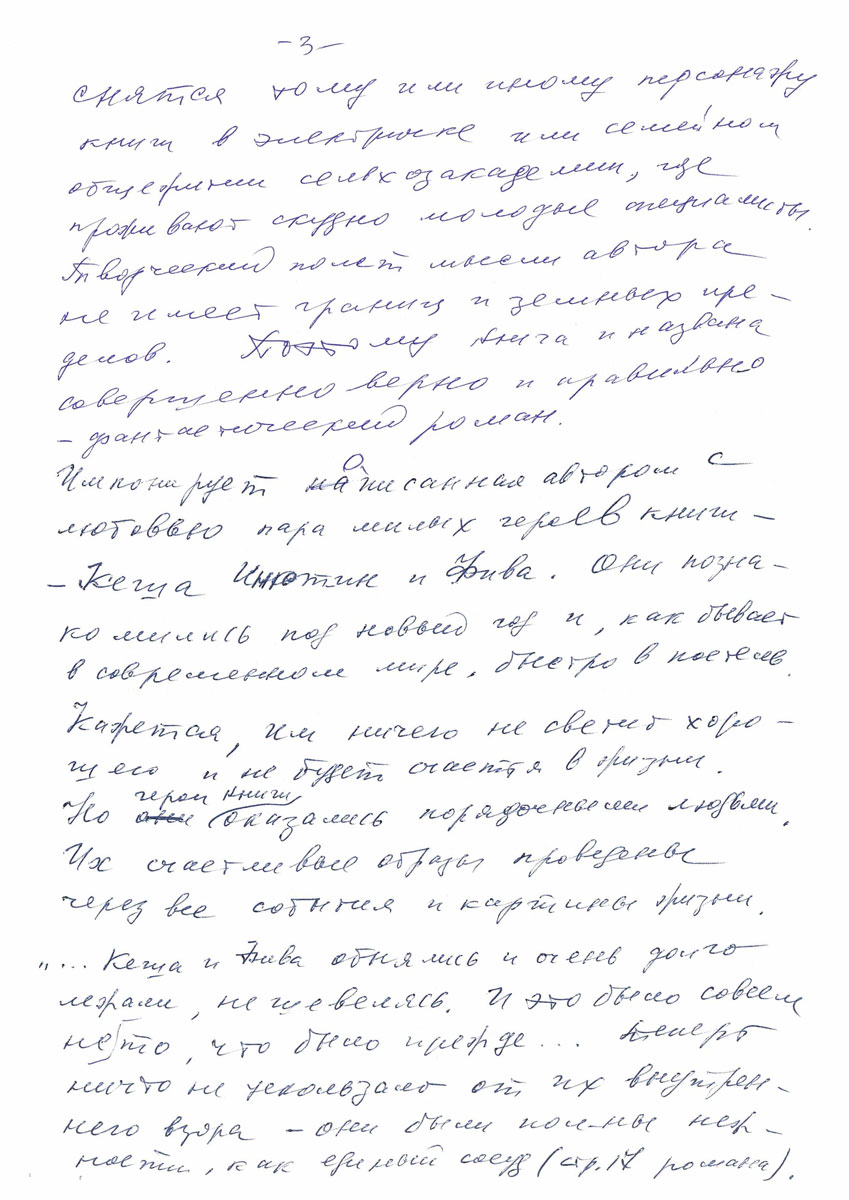 -3-
снятся тому или иному персонажу
книги в электричке или семейном
общежитии сельхозакадемии, где
проживают скудно молодые специалисты.
Творческий полет мысли автора
не имеет границ и земных пре-
делов. Поэтому книга и названа
совершенно верно и правильно
- фантастический роман.
Импонирует описанная автором с
любовью пара милых героев книги -
- Кеша Инютин и Вива. Они позна-
комились под новый год и, как бывает
в современном мире, быстро в постель.
Кажется, им ничего не светит хоро-
шего и не будет счастья в жизни.
Но герои книги оказались порядочными людьми.
Их счастливые образы проведены
через все события и картины жизни.
"... Кеша и Вива обнялись и очень долго
лежали, не шевелясь. И это было совсем
не то, что было прежде... Теперь
ничто не ускользало от их внутрен-
него взора - они были полны неж-
ности, как единый сосуд (стр. 17 романа).